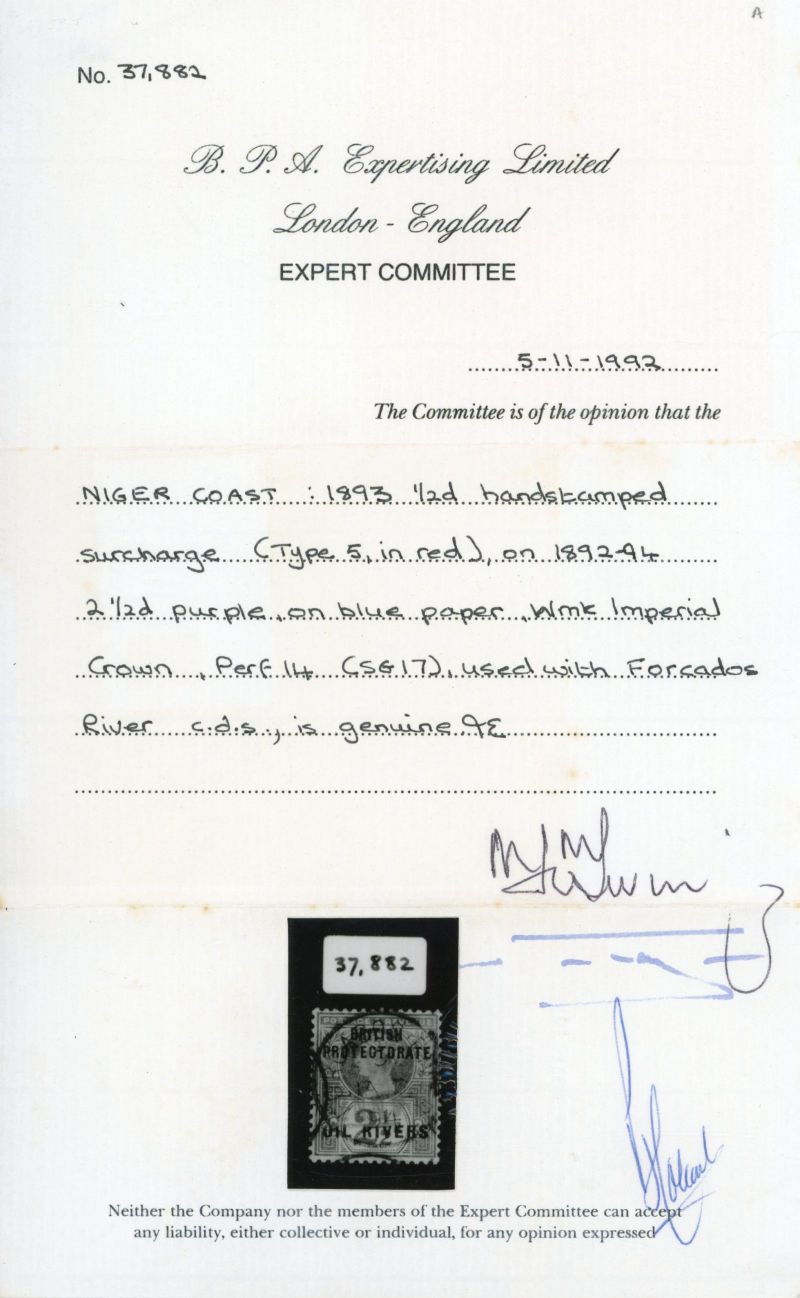 A
No. 37,882
B. P. A. Expertising Limited
London - England
EXPERT COMMITTEE
5-11-1992
The Committee is of the opinion that the
NIGER COAST : 1893 1/2d handstamped
surcharge (Type 5, in red), on 1892-94
2 1/2d purple, on blue paper, Wmk Imperial
Crown, Perf 14 (SG 17), used with Forcados
River c.d.s., is genuine
37,882
BRITISH
PROTECTORATE
OIL RIVERS
Neither the Company nor the members of the Expert Committee can accept
any liability, either collective or individual, for any opinion expressed